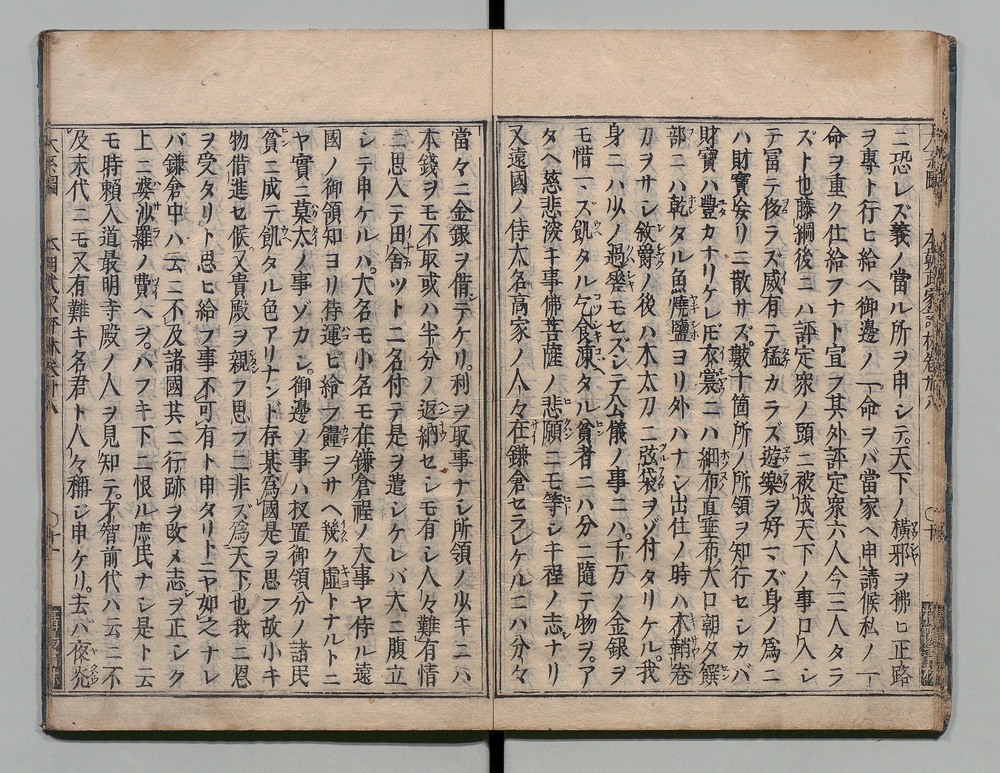 ニ恐レズ義ノ當ル所ヲ申シテ。天下ノ横邪ヲ拂ヒ正路
ヲ專ト行ヒ給ヘ御邊ノ一命ヲバ當家ヘ申請候私ノ一
命ヲ重ク仕給フナト宣フ其外評定衆六人今三人タラ
ズト也藤綱後ニハ評定衆ノ頭ニ被成天下ノ事口入シ
テ冨テ侈ラズ威有テ猛カラズ遊樂ヲ好マズ身ノ爲ニ
ハ財寶妄リニ散サズ。數十箇所ノ所領ヲ知行センカバ
財寶ハ豊カナリケレ𪜈衣裳ニハ細布直垂布大口朝夕饌
部ニハ乾タル魚燒鹽ヨリ外ハナシ出仕ノ時ハ木鞘卷
刀ヲサシ敘爵ノ後ハ木太刀ニ弦袋ヲゾ付タリケル。我
身ニハ少ノ過差モセズシテ公儀ノ事ニハ。千万ノ金銀ヲ
モ惜マズ。飢タル乞食凍タル貧者ニハ分ニ隨テ物ヲ。ア
タヘ慈悲深キ事佛菩薩ノ悲願ニモ等シキ程ノ志ナリ
又遠國ノ侍大名高家ノ人々在鎌倉セラレケルニハ分々
當々ニ金銀ヲ借テケリ。利ヲ取事ナシ所領ノ少キニハ
本錢ヲモ不取或ハ半分ノ返納セシモ有シ人々難有情
ニ思入テ田舎ツトニ名付テ是ヲ遣シケレバ大ニ腹立
シテ申ケルハ。大名モ小名モ在鎌倉程ノ大事ヤ侍ル遠
國ノ御領知ヨリ侍運ビ給フ糧ヲサヘ幾ク虚トナルトニ
ヤ實ニ莫太ノ事ゾカシ。御邊ノ事ハ扠置御領分ノ諸民
貧ニ成テ飢タル色アリナント存某爲國是ヲ思フ故小キ
物借進セ候又貴殿ヲ親フ思フニ非ズ。爲天下也我ニ恩
ヲ受タリト思ヒ給フ事不可有ト申タリトニヤ如之ナレ
バ鎌倉中ハ云ニ不及諸國其ニ行跡ヲ改メ志ヲ正シク
上ニ婆沙羅ノ費ヘヲ。ハフキ下ニ恨ル庶民ナシ是ト云
モ時頼入道最明寺殿ノ人ヲ見知テ。才智前代ハ云ニ不
及末代ニモ又有難キ名君ト人々稱シ申ケリ。去バ夜光